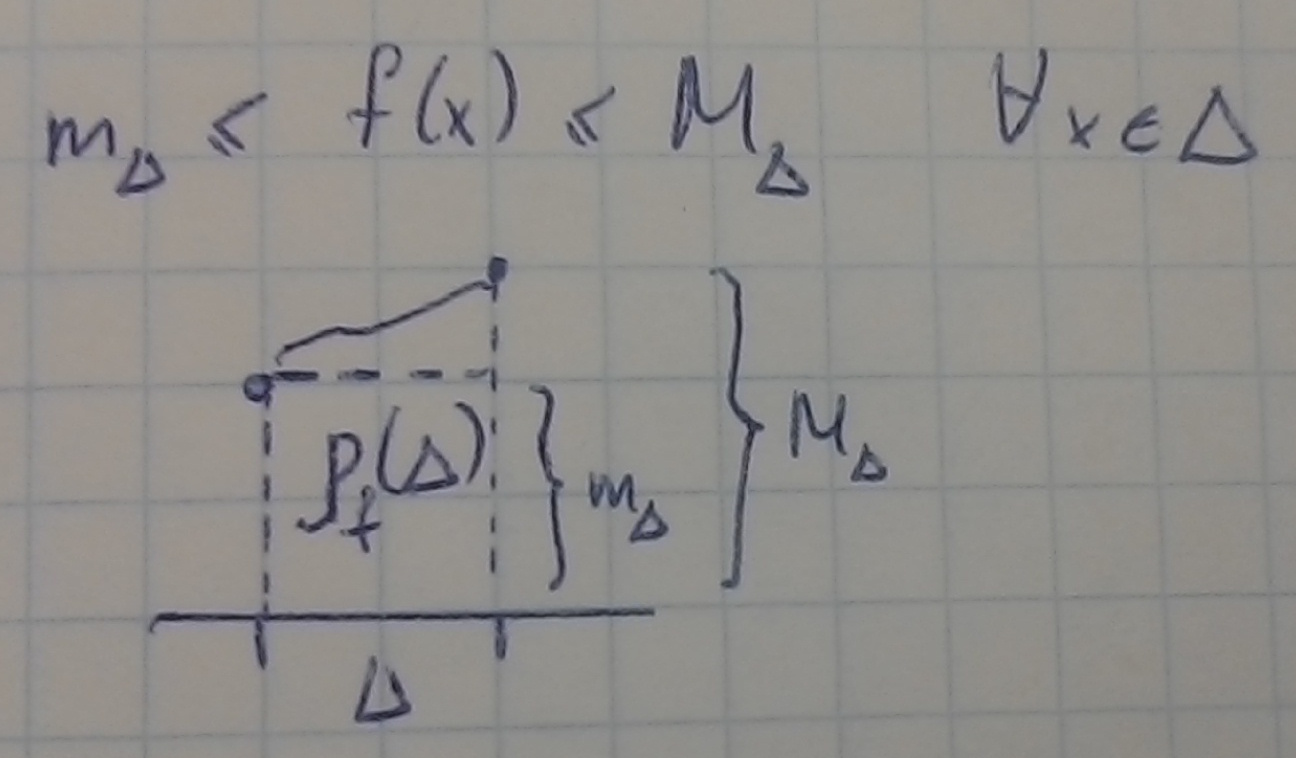 m_Δ ≤ f(x) ≤ M_Δ ∀x∈Δ
P_f(Δ) } m_Δ } M_Δ
Δ